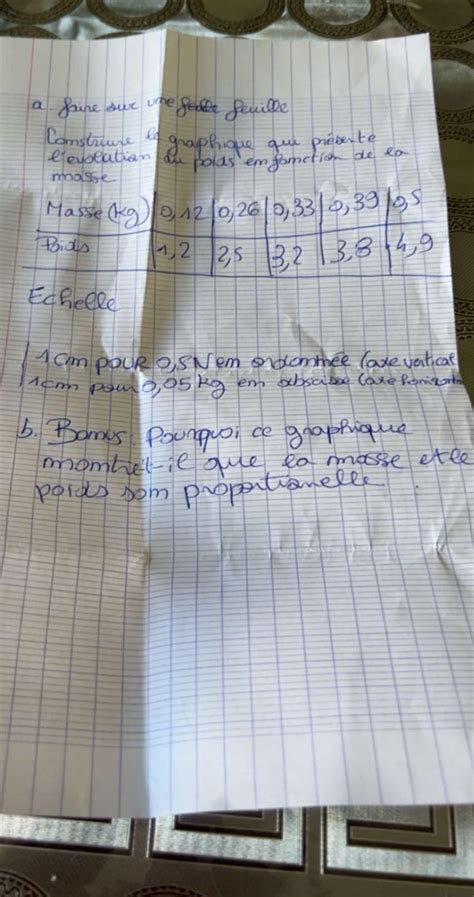 a. faire sur une feuille
Construire le graphique qui présente
l'évolution du poids en fonction de la
masse.
Masse (kg) | 0,12 | 0,26 | 0,33 | 0,39 | 0,5
Poids | 1,2 | 2,5 | 3,2 | 3,8 | 4,9
Echelle
1cm pour 0,5N en ordonnée (axe vertical
1cm pour 0,05 kg en abscisse (axe horizonta
b. Bonus: Pourquoi ce graphique
montret-il que la masse et le
poids som proportionelle.